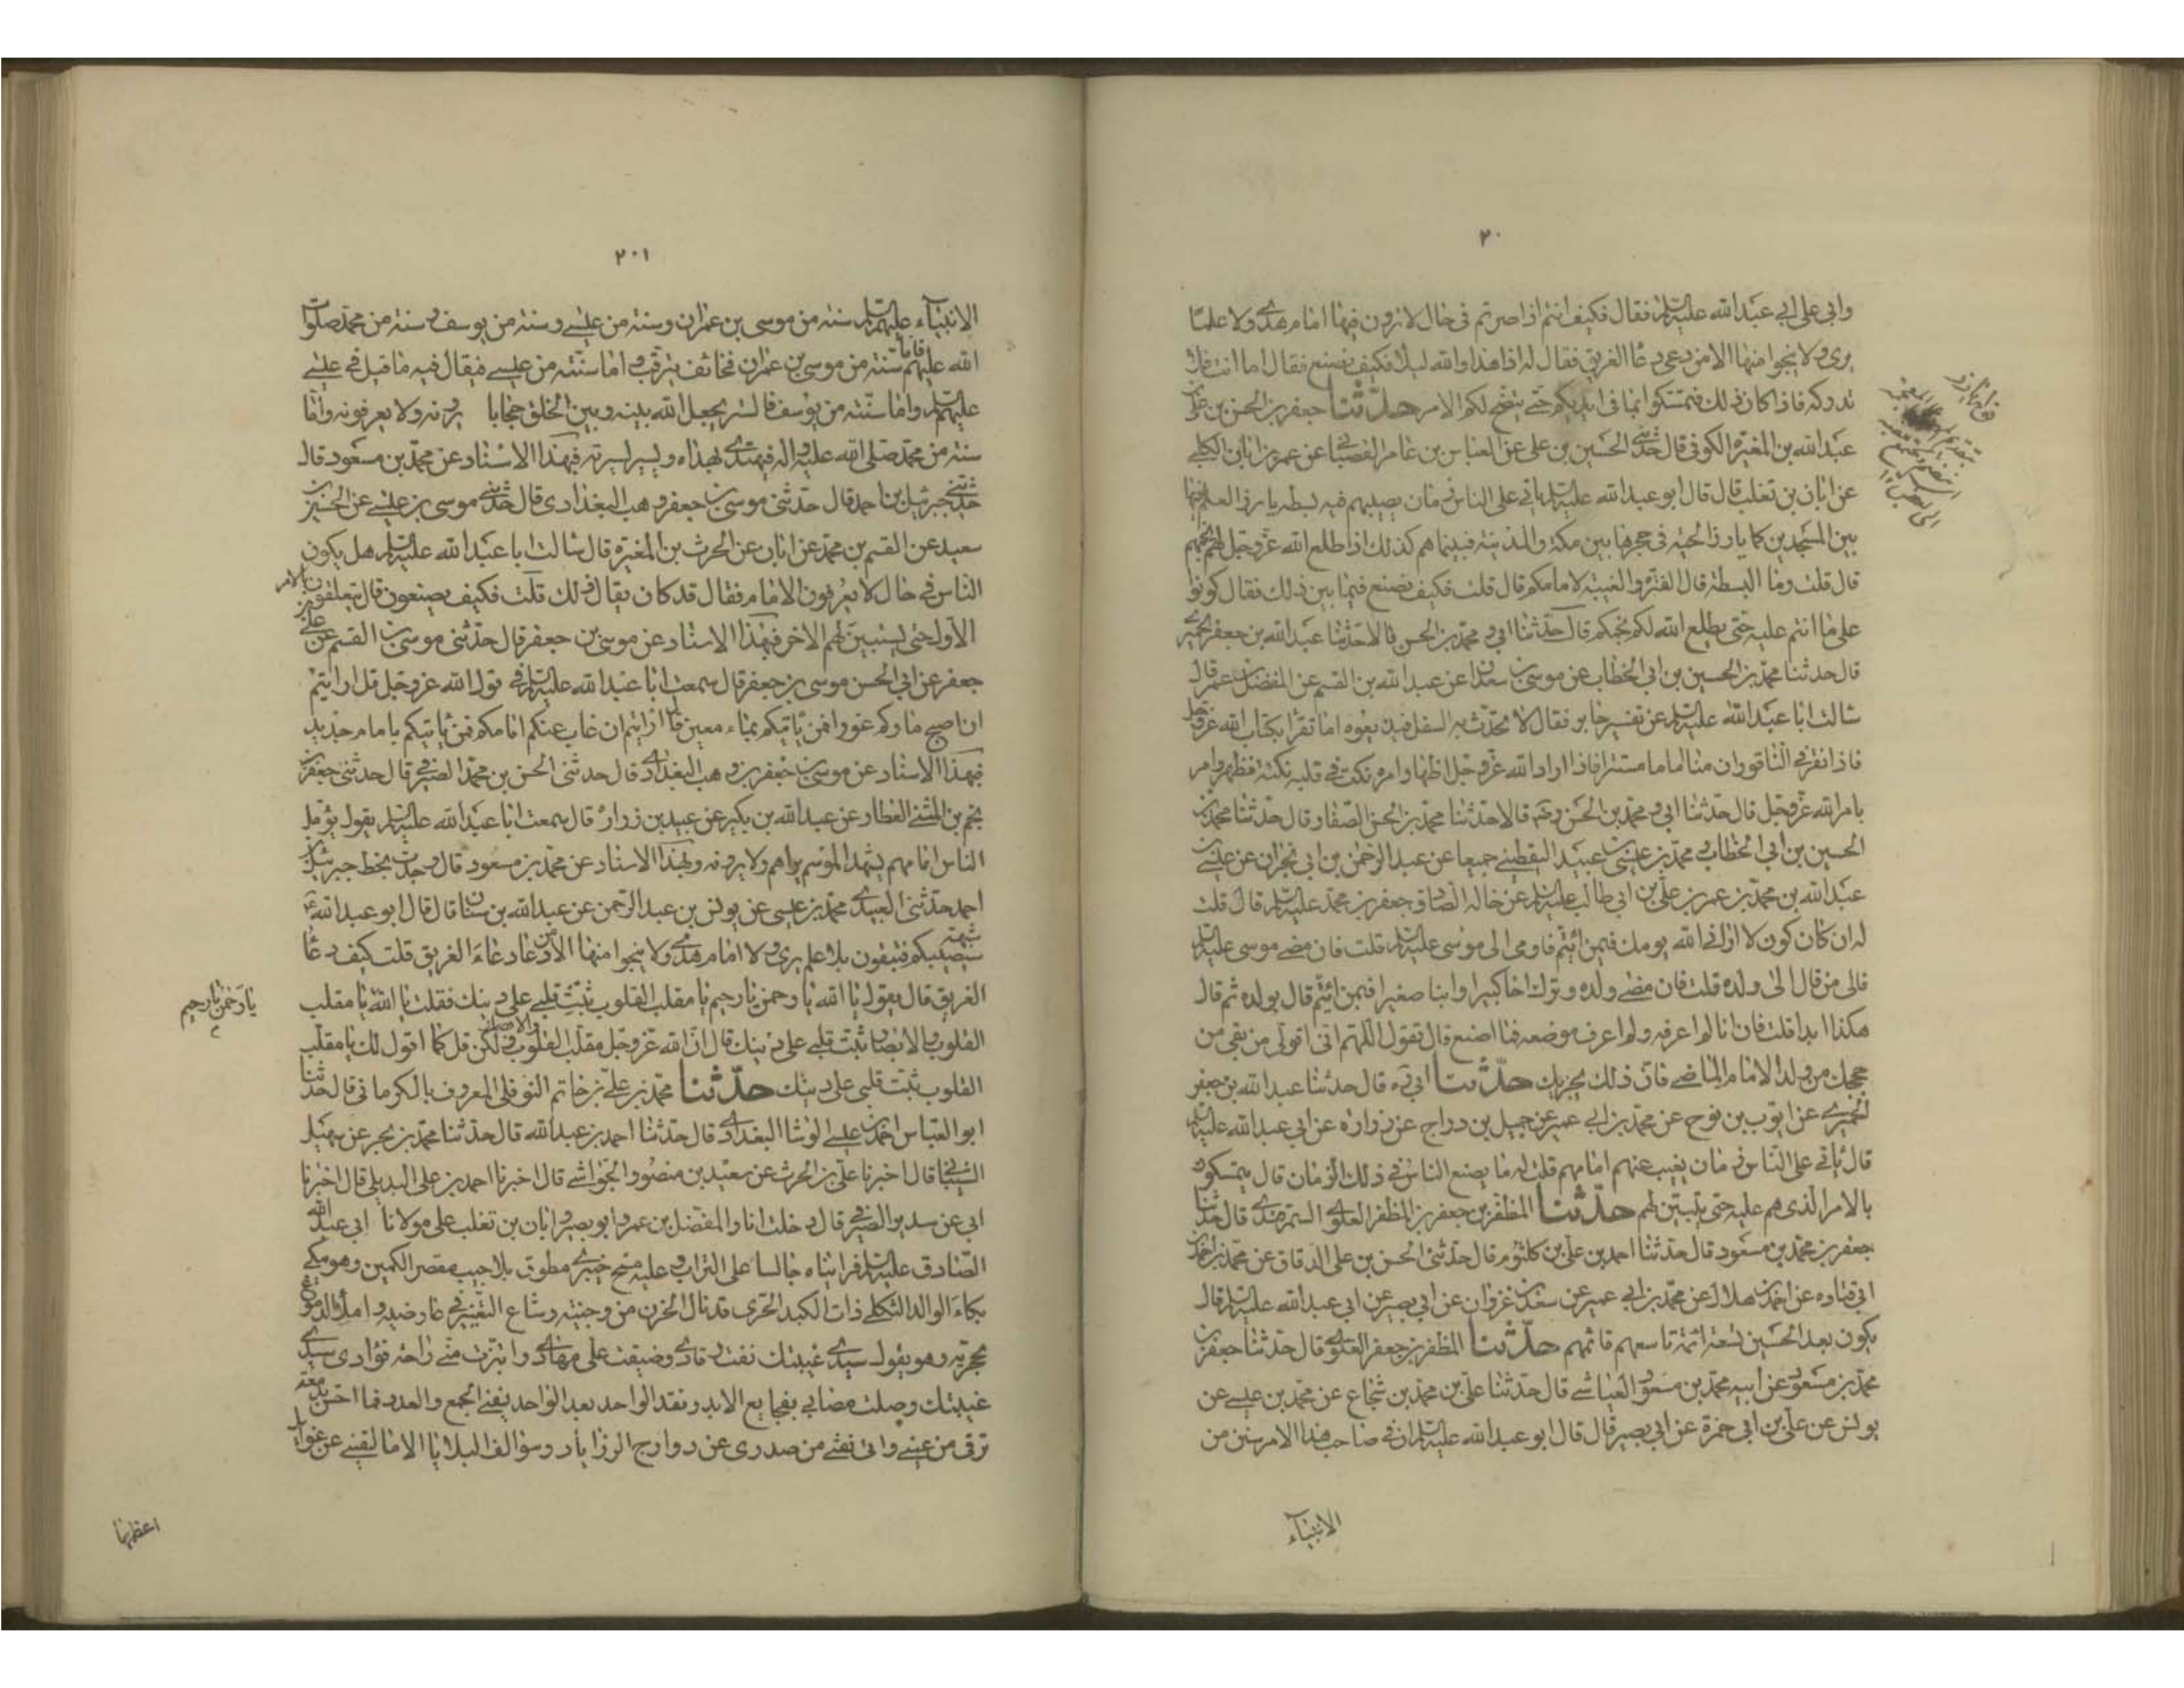 ٢٠
وابي على ابي عبد الله عليه السلم فقال فكيف انتم اذا صرتم في حال لا ترون فيها امام هدى ولا علما
يرى ولا ينجوا منها الا من دعى دعا الغريق فقال له اذا هذا والله ليلا فكيف نصنع فقال اما انت فلا
تدركه فاذا كان ذلك فتمسكوا بما في ايديكم حتى يتضح لكم الامر حدثنا جعفر بن الحسن بن على
عبد الله بن المغيرة الكوفى قال حدثنى الحسين بن على عن العباس بن عامر القصبانى عن عمر بن ابان الكلبى
عن ابان بن تغلب قال قال ابو عبد الله عليه السلم ياتى على الناس زمان يصيبهم فيه بسطة يارز العلم فيها
بين المسجدين كما يارز الحية في جحرها بين مكة والمدينة فبينما هم كذلك اذا طلع الله عز وجل لهم نجمهم
قال قلت وما البسطة قال الفترة والغيبة لامامكم قال قلت فكيف نصنع فيما بين ذلك فقال كونوا
على ما انتم عليه حتى يطلع الله لكم نجمكم قال حدثنا ابى ومحمد بن الحسن قالا حدثنا عبد الله بن جعفر الحميرى
قال حدثنا محمد بن الحسين بن ابى الخطاب عن موسى بن سعدان عن عبد الله بن القسم عن المفضل بن عمر قال
سالت ابا عبد الله عليه السلم عن تفسير جابر فقال لا تحدث به السفل فيذيعوه اما تقرا بكتاب الله عز وجل
فاذا نقر في الناقور ان منا اماما مستترا فاذا اراد الله عز وجل اظهار امره نكت في قلبه نكتة فظهر وامر
بامر الله عز وجل قال حدثنا ابى ومحمد بن الحسن رحمه قالا حدثنا محمد بن الحسن الصفار قال حدثنا محمد بن
الحسين بن ابى الخطاب ومحمد بن عيسى بن عبيد اليقطينى جميعا عن عبد الرحمن بن ابى نجران عن عيسى بن
عبد الله بن محمد بن عمر بن على بن ابى طالب عليه السلم عن خاله الصادق جعفر بن محمد عليه السلم قال قلت
له ان كان كون لا ارانى الله يومك فبمن ائتم فاومى الى موسى عليه السلم قلت فان مضى موسى عليه السلم
فالى من قال الى ولده قلت فان مضى ولده وترك اخا كبيرا وابنا صغيرا فبمن ائتم قال بولده ثم قال
هكذا ابدا قلت فان انا لم اعرفه ولم اعرف موضعه فما اصنع قال تقول اللهم انى اتولى من بقى من
حججك من ولد الامام الماضى فان ذلك يجزيك حدثنا ابى ره قال حدثنا عبد الله بن جعفر
الحميرى عن ايوب بن نوح عن محمد بن ابى عمير عن جميل بن دراج عن زرارة عن ابى عبد الله عليه السلم
قال ياتى على الناس زمان يغيب عنهم امامهم قلت له ما يصنع الناس في ذلك الزمان قال يتمسكون
بالامر الذى هم عليه حتى يتبين لهم حدثنا المظفر بن جعفر بن المظفر العلوى السمرقندى قال حدثنا
جعفر بن محمد بن مسعود قال حدثنا احمد بن على بن كلثوم قال حدثنى الحسن بن على الدقاق عن محمد بن احمد بن
ابى قتاده عن احمد بن هلال عن محمد بن ابى عمير عن سعد بن غزوان عن ابى بصير عن ابى عبد الله عليه السلم قال
يكون بعد الحسين تسعة ائمة تاسعهم قائمهم حدثنا المظفر بن جعفر العلوى قال حدثنا جعفر بن
محمد بن مسعود عن ابيه محمد بن مسعود العياشى قال حدثنا على بن محمد بن شجاع عن محمد بن عيسى عن
يونس عن على بن ابى حمزة عن ابى بصير قال قال ابو عبد الله عليه السلم ان في صاحب هذا الامر سنن من
الانبياء
٢٠١
الانبياء عليهم السلم سنة من موسى بن عمران وسنة من عيسى وسنة من يوسف وسنة من محمد صلوات
الله عليهم فاما سنته من موسى بن عمران فخائف يترقب واما سنته من عيسى فيقال فيه ما قيل في عيسى
عليهم السلم واما سنته من يوسف فالستر يجعل الله بينه وبين الخلق حجابا يرونه ولا يعرفونه واما
سنته من محمد صلى الله عليه واله فيهتدى بهداه ويسير بسيرته فبهذا الاسناد عن محمد بن مسعود قال
حدثنى جبرئيل بن احمد قال حدثنى موسى بن جعفر وهب البغدادى قال حدثنى موسى بن عيسى عن الحسين بن
سعيد عن القسم بن محمد عن ابان عن الحرث بن المغيرة قال سالت ابا عبد الله عليه السلم هل يكون
الناس في حال لا يعرفون الامام فقال قد كان يقال ذلك قلت فكيف يصنعون قال يتعلقون بالامر
الاول حتى يستبين لهم الاخر فبهذا الاسناد عن موسى بن جعفر قال حدثنى موسى بن القسم عن على بن
جعفر عن ابى الحسن موسى بن جعفر قال سمعت ابا عبد الله عليه السلم في قول الله عز وجل قل ارايتم
ان اصبح ماؤكم غورا فمن ياتيكم بماء معين قال ارايتم ان غاب عنكم امامكم فمن ياتيكم بامام جديد
فبهذا الاسناد عن موسى بن جعفر بن وهب البغدادى قال حدثنى الحسن بن محمد الصيرفى قال حدثنى جعفر بن
نجم بن المثنى العطار عن عبد الله بن بكير عن عبيد بن زرارة قال سمعت ابا عبد الله عليه السلم يقول يفقد
الناس امامهم يشهد الموسم يراهم ولا يرونه وبهذا الاسناد عن محمد بن مسعود قال وجدت بخط جبرئيل بن
احمد حدثنى العبيدى محمد بن عيسى عن يونس بن عبد الرحمن عن عبد الله بن سنان قال قال ابو عبد الله ع
سيصيبكم شبهة فتبقون بلا علم يرى ولا امام هدى ولا ينجوا منها الا من دعا دعاء الغريق قلت كيف دعا
الغريق قال يقول يا الله يا رحمن يا رحيم يا مقلب القلوب ثبت قلبى على دينك فقلت يا الله يا مقلب
يا رحمن يا رحيم
القلوب والابصار ثبت قلبى على دينك قال ان الله عز وجل مقلب القلوب والابصار ولكن قل كما اقول لك يا مقلب
القلوب ثبت قلبى على دينك حدثنا محمد بن على بن حاتم النوفلى المعروف بالكرمانى قال حدثنا
ابو العباس احمد بن عيسى الوشا البغدادى قال حدثنا احمد بن عبد الله قال حدثنا محمد بن بحر عن سهيل
الشيبانى قال اخبرنا على بن الحرث عن سعيد بن منصور الجواشى قال اخبرنا احمد بن على البديلى قال اخبرنا
ابى عن سدير الصيرفى قال دخلت انا والمفضل بن عمر وابو بصير وابان بن تغلب على مولانا ابى عبد الله
الصادق عليه السلم فرايناه جالسا على التراب وعليه مسح خيبرى مطوق بلا جيب مقصر الكمين وهو يبكى
بكاء الوالد الثكلى ذات الكبد الحرى قد نال الحزن من وجنتيه وشاع التغيير في عارضيه واملا الدموع
محجريه وهو يقول سيدى غيبتك نفت رقادى وضيقت على مهادى وابتزت منى راحة فؤادى سيدى
غيبتك وصلت مصابى بفجايع الابد وفقد الواحد بعد الواحد يفنى الجمع والعدد فما احس بدمعة
ترقى من عينى وانين يفتى من صدرى عن دوارج الرزايا وسوالف البلايا الا ما لقينى عن غوائل
اعظمها